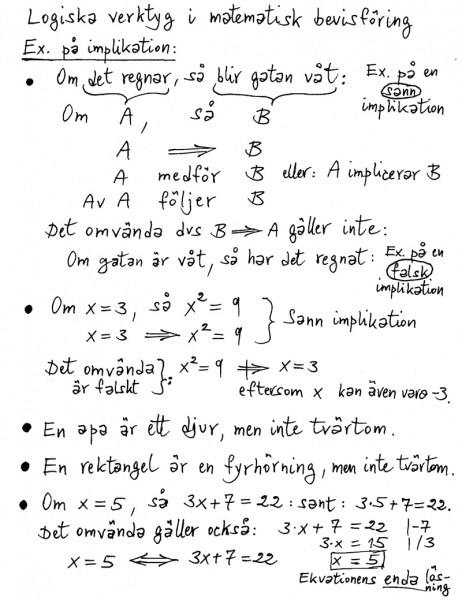 Logiska verktyg i matematisk bevisföring
Ex. på implikation:
• Om det regnar, så blir gatan våt: Ex. på en sann implikation
Om A, så B
A ⟹ B
A medför B eller: A implicerar B
Av A följer B
Det omvända dvs B ⟹ A gäller inte:
Om gatan är våt, så har det regnat: Ex. på en falsk implikation
• Om x=3, så x² = 9
x=3 ⟹ x² = 9 } Sann implikation
Det omvända är falskt }: x² = 9 ⇏ x=3
eftersom x kan även vara -3.
• En apa är ett djur, men inte tvärtom.
• En rektangel är en fyrhörning, men inte tvärtom.
• Om x=5, så 3x+7=22 : sant: 3·5+7=22.
Det omvända gäller också: 3·x + 7 = 22 |-7
3·x = 15 | /3
x=5 ⟺ 3x+7=22 x=5
Ekvationens enda lösning